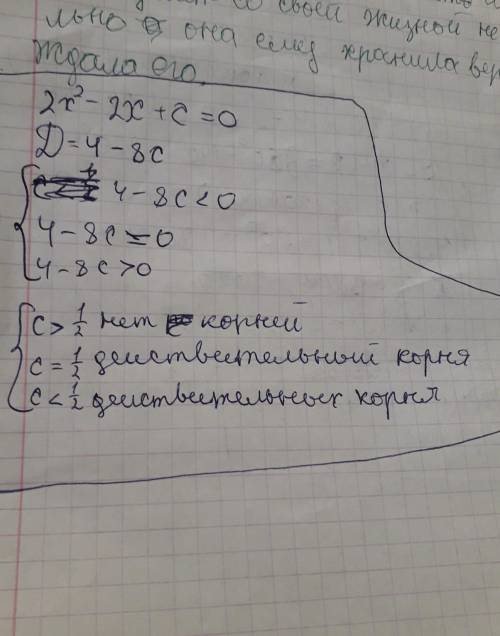 своей жизной не
льно она ему хранила вер
ждала его.
2x² - 2x + c = 0
D = 4 - 8c
4 - 8c < 0
4 - 8c = 0
4 - 8c > 0
c > 1/2 нет корней
c = 1/2 действительный корня
c < 1/2 действительных корня